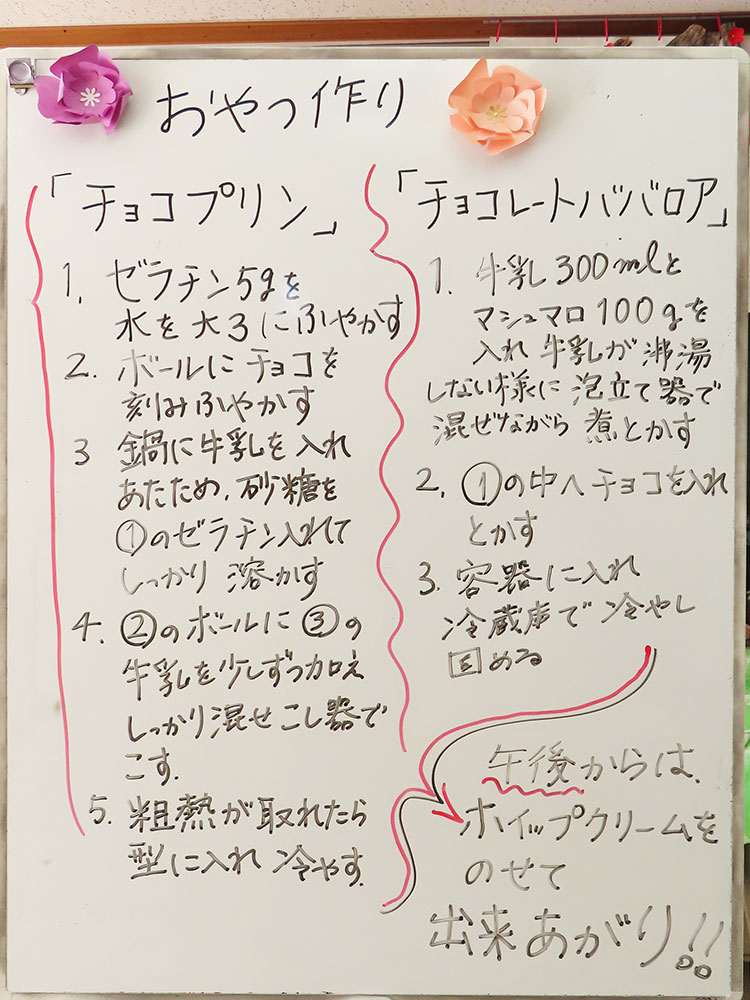 おやつ作り
「チョコプリン」
1. ゼラチン5gを
水を大3にふやかす
2. ボールにチョコを
刻みふやかす
3 鍋に牛乳を入れ
あたため、砂糖を
①のゼラチン入れて
しっかり溶かす
4. ②のボールに③の
牛乳を少しずつ加え
しっかり混ぜこし器で
こす.
5. 粗熱が取れたら
型に入れ冷やす.
「チョコレートババロア」
1. 牛乳300mlと
マシュマロ100gを
入れ牛乳が沸湯
しない様に泡立て器で
混ぜながら煮とかす
2. ①の中へチョコを入れ
とかす
3. 容器に入れ
冷蔵庫で冷やし
固める
午後からは、
ホイップクリームを
のせて
出来あがり!!